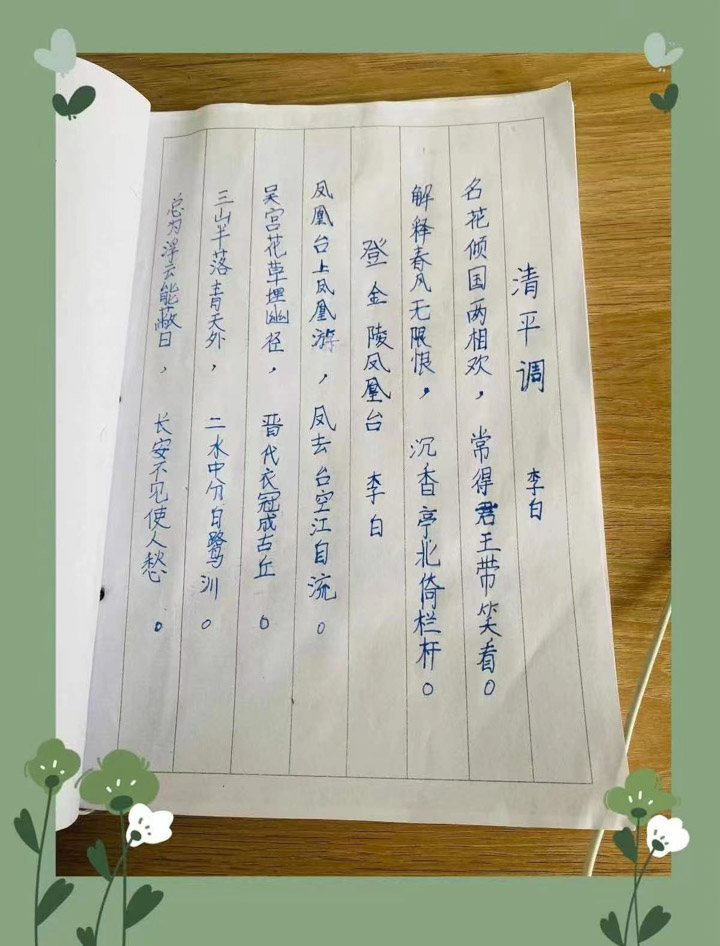 清平调 李白
名花倾国两相欢，常得君王带笑看。
解释春风无限恨，沉香亭北倚栏杆。
登金陵凤凰台 李白
凤凰台上凤凰游，凤去台空江自流。
吴宫花草埋幽径，晋代衣冠成古丘。
三山半落青天外，二水中分白鹭洲。
总为浮云能蔽日，长安不见使人愁。